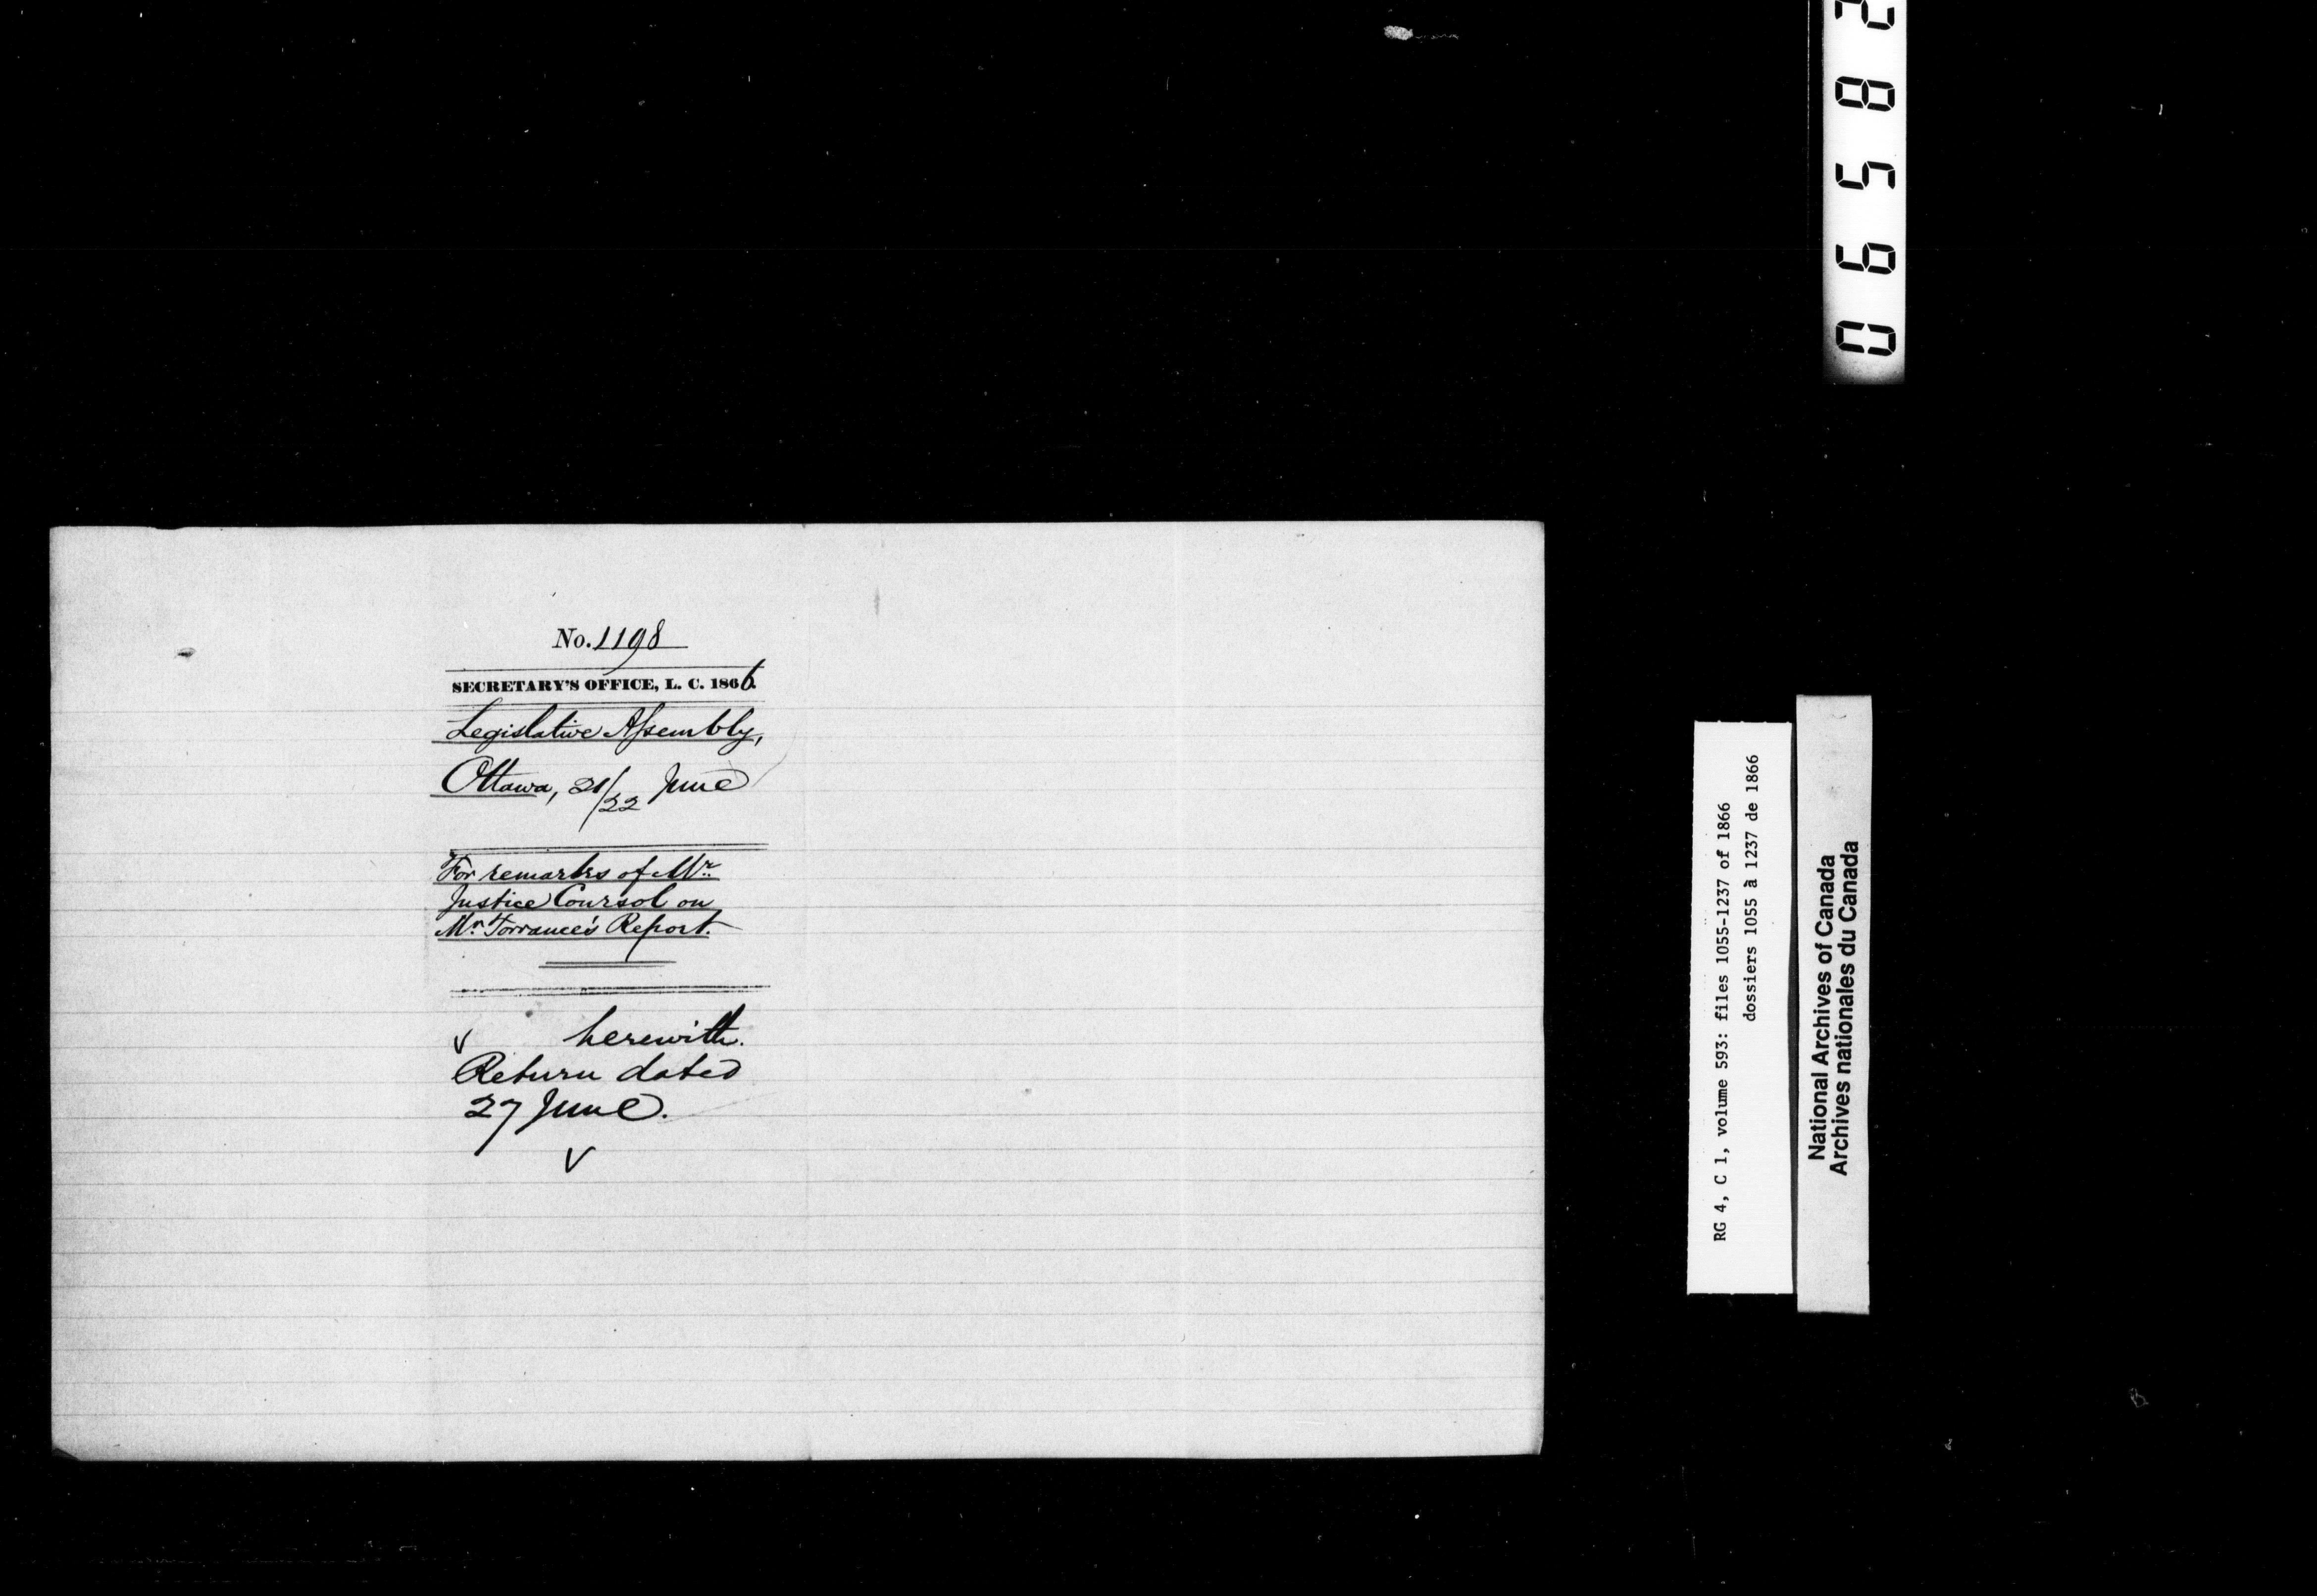 No. 1198
SECRETARY'S OFFICE, L. C. 1866.
Legislative Assembly,
Ottawa, 21/22 June
For remarks of Mr.
Justice Coursol on
Mr. Torrance's Report.
v herewith.
Return dated
27 June.
v
RG 4, C 1, volume 593: files 1055-1237 of 1866
dossiers 1055 à 1237 de 1866
National Archives of Canada
Archives nationales du Canada
06582